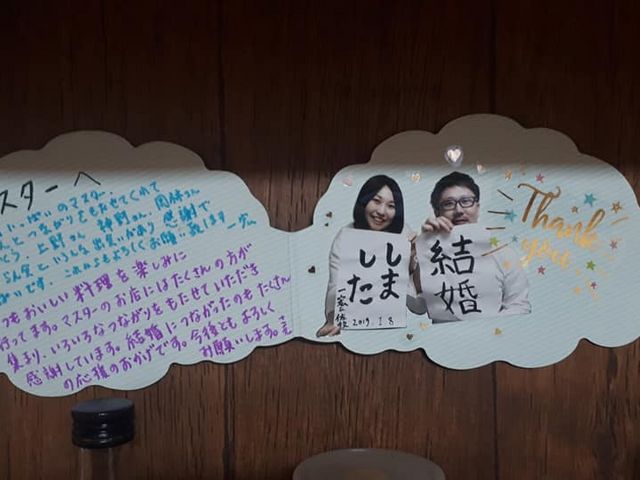 スターへ
いっぱいのマスター
つながりをもたせてくれて
上野さん 神野さん 岡林さん
出会いがあり 感謝で
これからもよろしくお願い致します
つもおいしい料理を楽しみに
行ってます。マスターのお店にはたくさんの方が
集まり、いろいろなつながりをもたせていただき
感謝しています。結婚につながったのもたくさん
の応援のおかげです。今後ともよろしく
お願いします。
結婚
しま
した
2019.1.8
Thank
you